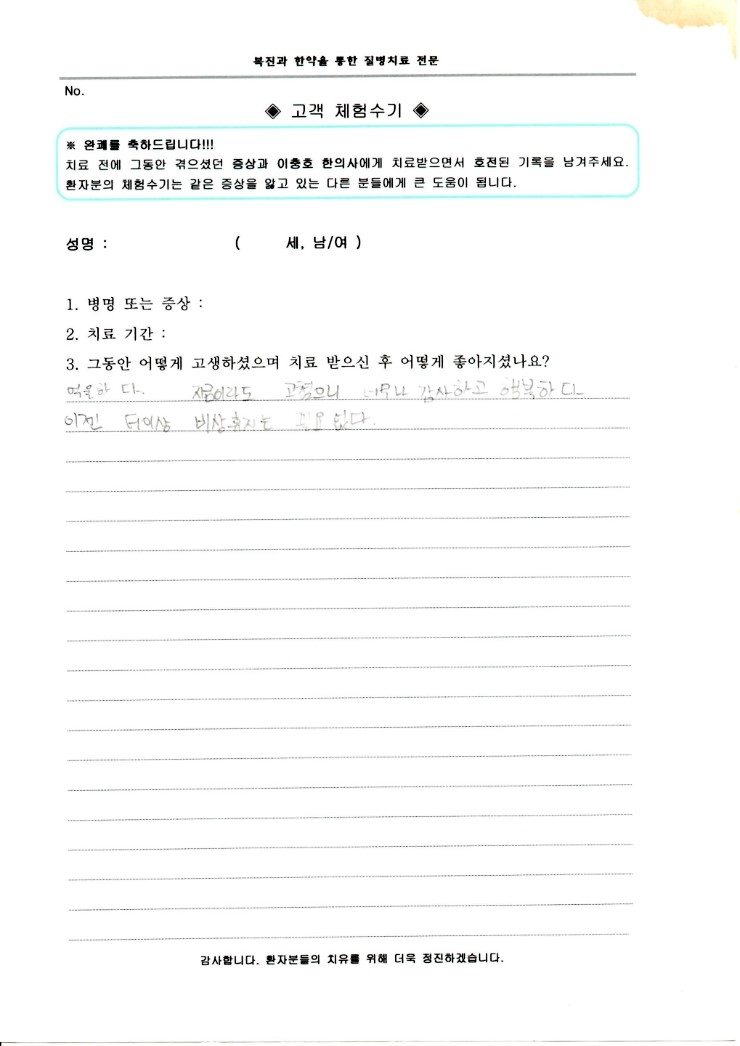 복진과 한약을 통한 질병치료 전문
No.
◈ 고객 체험수기 ◈
※ 완쾌를 축하드립니다!!!
치료 전에 그동안 겪으셨던 증상과 이충호 한의사에게 치료받으면서 호전된 기록을 남겨주세요.
환자분의 체험수기는 같은 증상을 앓고 있는 다른 분들에게 큰 도움이 됩니다.
성명 : ( 세, 남/여 )
1. 병명 또는 증상 :
2. 치료 기간 :
3. 그동안 어떻게 고생하셨으며 치료 받으신 후 어떻게 좋아지셨나요?
억울하다. 지금이라도 고쳤으니 너무나 감사하고 행복하다
이젠 더이상 비상휴지는 필요 없다.
감사합니다. 환자분들의 치유를 위해 더욱 정진하겠습니다.